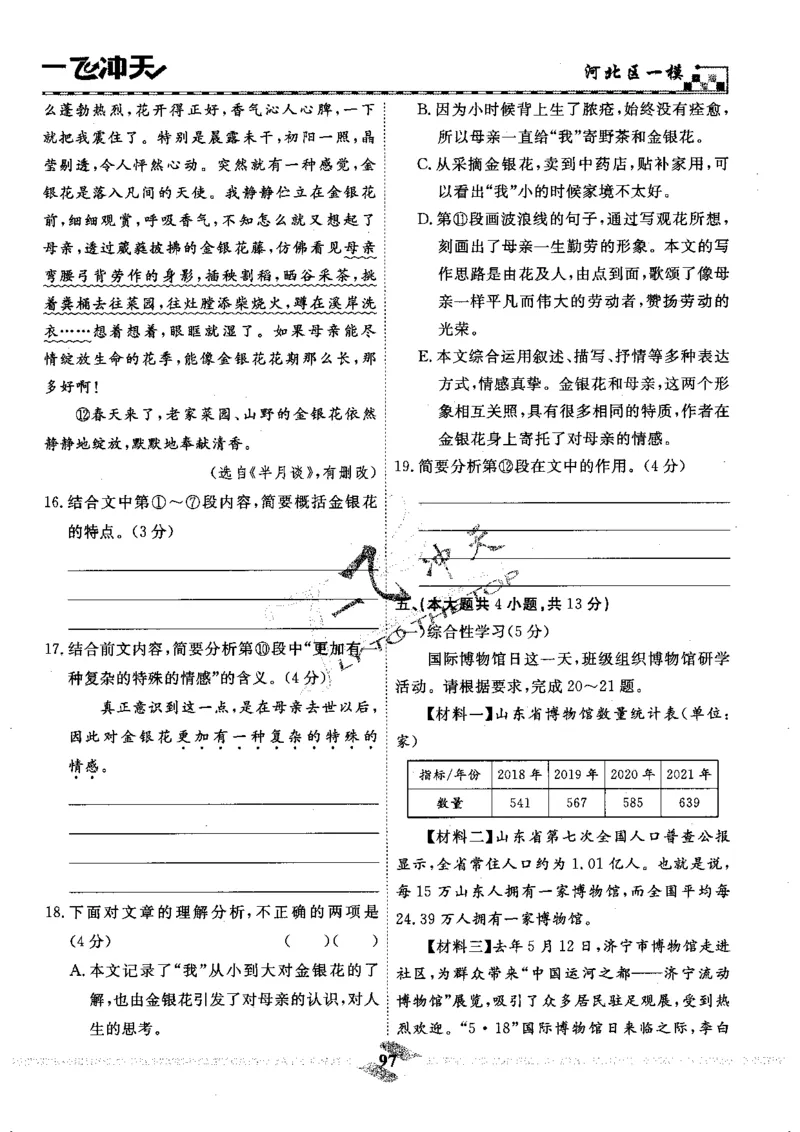 一飞冲天
河北区一模
么蓬勃热烈，花开得正好，香气沁人心脾，一下
就把我震住了。特别是晨露未干，初阳一照，晶
莹剔透，令人怦然心动。突然就有一种感觉，金
银花是落入凡间的天使。我静静伫立在金银花
前，细细观赏，呼吸香气，不知怎么就又想起了
母亲，透过葳蕤披拂的金银花藤，仿佛看见母亲
弯腰弓背劳作的身影，插秧割稻，晒谷采茶，挑
着粪桶去往菜园，往灶膛添柴烧火，蹲在溪岸洗
衣……想着想着，眼眶就湿了。如果母亲能尽
情绽放生命的花季，能像金银花花期那么长，那
多好啊！
⑫春天来了，老家菜园、山野的金银花依然
静静地绽放，默默地奉献清香。
（选自《半月谈》，有删改）
16.结合文中第①～⑦段内容，简要概括金银花
的特点。（3分）
17.结合前文内容，简要分析第⑩段中“更加有一
种复杂的特殊的情感”的含义。（4分）
真正意识到这一点，是在母亲去世以后，
因此对金银花更加有一种复杂的特殊的
情感。
18.下面对文章的理解分析，不正确的两项是
（4分） （ ）（ ）
A.本文记录了“我”从小到大对金银花的了
解，也由金银花引发了对母亲的认识，对人
生的思考。
B.因为小时候背上生了脓疮，始终没有痊愈，
所以母亲一直给“我”寄野茶和金银花。
C.从采摘金银花，卖到中药店，贴补家用，可
以看出“我”小的时候家境不太好。
D.第⑪段画波浪线的句子，通过写观花所想，
刻画出了母亲一生勤劳的形象。本文的写
作思路是由花及人，由点到面，歌颂了像母
亲一样平凡而伟大的劳动者，赞扬劳动的
光荣。
E.本文综合运用叙述、描写、抒情等多种表达
方式，情感真挚。金银花和母亲，这两个形
象相互关照，具有很多相同的特质，作者在
金银花身上寄托了对母亲的情感。
19.简要分析第⑫段在文中的作用。（4分）
一飞冲天
FLY TO THE TOP
五、（本大题共4小题，共13分）
（一）综合性学习（5分）
国际博物馆日这一天，班级组织博物馆研学
活动。请根据要求，完成20～21题。
【材料一】山东省博物馆数量统计表（单位：
家）
指标/年份 2018年 2019年 2020年 2021年
数量 541 567 585 639
【材料二】山东省第七次全国人口普查公报
显示，全省常住人口约为1.01亿人。也就是说，
每15万山东人拥有一家博物馆，而全国平均每
24.39万人拥有一家博物馆。
【材料三】去年5月12日，济宁市博物馆走进
社区，为群众带来“中国运河之都——济宁流动
博物馆”展览，吸引了众多居民驻足观展，受到热
烈欢迎。“5·18”国际博物馆日来临之际，李白
97